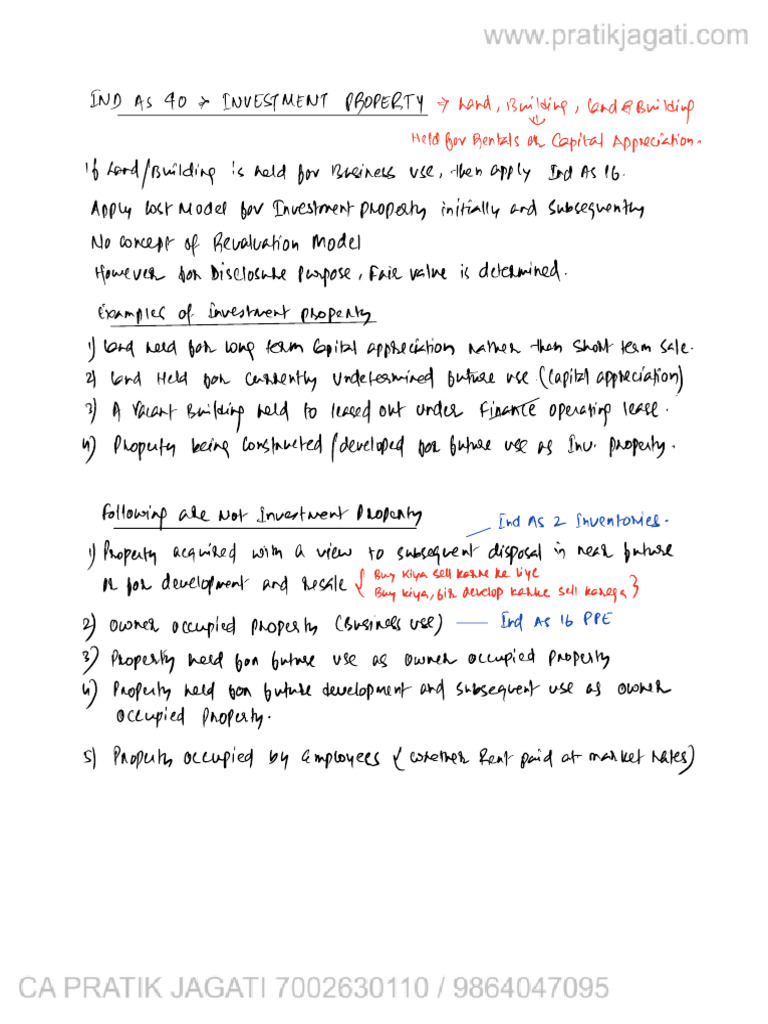 www.pratikjagati.com
IND AS 40 → INVESTMENT PROPERTY → Land, Building, Land & Building
Held for Rentals or Capital Appreciation.
If Land/Building is held for Business use, then apply Ind AS 16.
Apply Cost Model for Investment property initially and subsequently
No concept of Revaluation Model
However for Disclosure Purpose, Fair value is determined.
Examples of Investment property
1) Land held for long term Capital appreciation rather than short term sale.
2) Land Held for currently undetermined future use (Capital appreciation)
3) A vacant Building held to leased out under Finance operating lease.
4) Property being constructed/developed for future use as Inv. property.
Following are Not Investment Property
Ind AS 2 Inventories.
1) Property acquired with a view to subsequent disposal in near future
or for development and resale { Buy kiya sell karne ke liye
Buy kiya, fir develop karke sell karega }
2) Owner occupied property (Business use) — Ind AS 16 PPE
3) Property held for future use as owner occupied property
4) Property held for future development and subsequent use as owner
occupied property.
5) Property occupied by employees { whether Rent paid at market rates }
CA PRATIK JAGATI 7002630110 / 9864047095